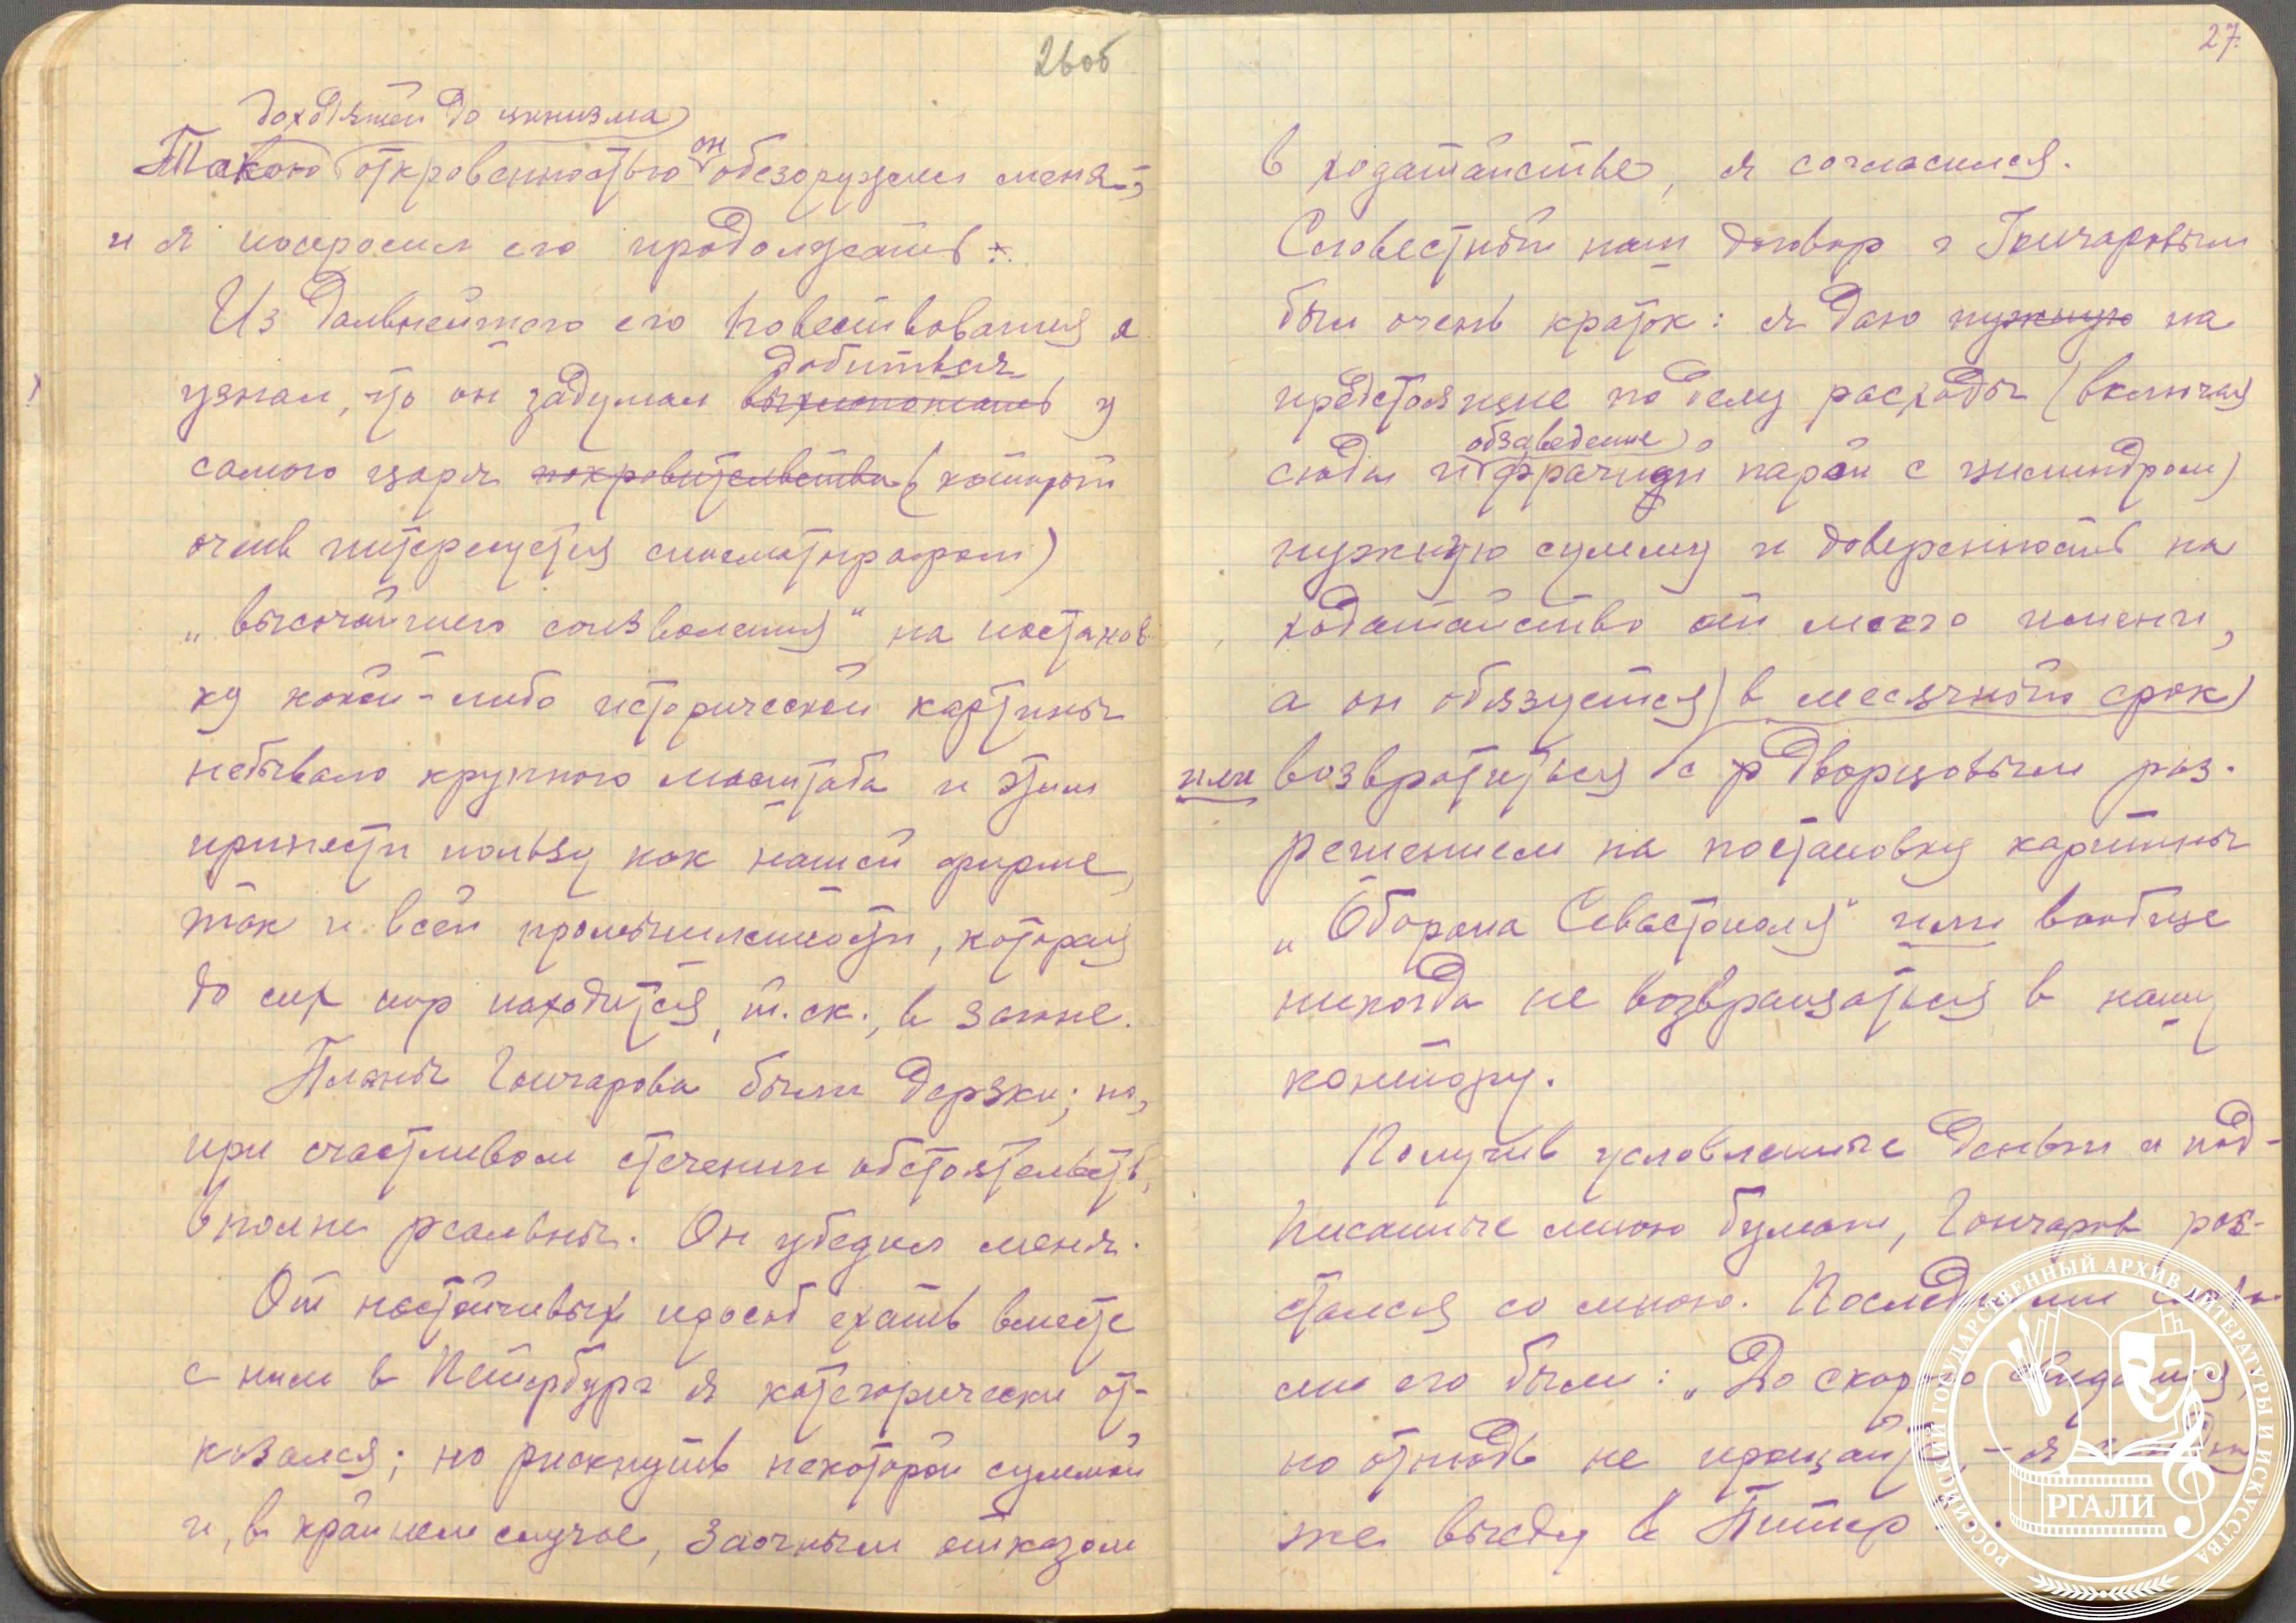 26об
доходящей до цинизма
Такою откровенностью он обезоружил меня,
и я попросил его продолжать.
Из дальнейшего его повествования я
добиться
узнал, что он задумал выхлопотать у
самого царя покровительства (который
очень интересуется синематографом)
„высочайшего соизволения" на постанов-
ку какой-либо исторической картины
небывало крупного масштаба и этим
принести пользу как нашей фирме,
так и всей промышленности, которая
до сих пор находится, т. ск., в загоне.
Планы Гончарова были дерзки; но,
при счастливом стечении обстоятельств,
вполне реальны. Он убедил меня.
От настойчивых просьб ехать вместе
с ним в Петербург я категорически от-
казался; но рискнуть некоторой суммой
и, в крайнем случае, заочным отказом
27.
в ходатайстве, я согласился.
Словестный наш договор с Гончаровым
был очень краток: я даю нужную на
предстоящие по делу расходы (включая
обзаведение
сюда и фрачной парой с цилиндром)
нужную сумму и доверенность на
ходатайство от моего имени,
а он обязуется в месячный срок
или возвратиться с дворцовым раз-
решением на постановку картины
„Оборона Севастополя" или вообще
никогда не возвращаться в нашу
контору.
Получив условленные деньги и под-
писанные мною бумаги, Гончаров рас-
стался со мною. Последними слова-
ми его были: „До скорого свидания,
но отнюдь не прощайте, – я
же выеду в Питер
РОССИЙСКИЙ ГОСУДАРСТВЕННЫЙ АРХИВ ЛИТЕРАТУРЫ И ИСКУССТВА
РГАЛИ